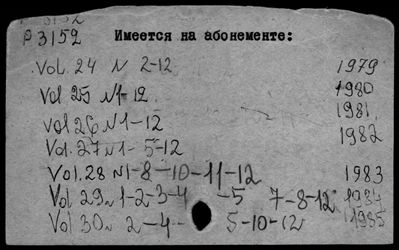 Р3152 Имеется на абонементе:
Vol. 24 N 2-12 1979
Vol 25 N1-12. 1980
Vol 26 N1-12 1981
Vol. 27 N1- 5-12 1982
Vol. 28 N1-8-10-11-12 1983
Vol 29 N 1-2-3-4 -5 7-8-12 1984
Vol 30 N 2-4- 5-10-12 1985